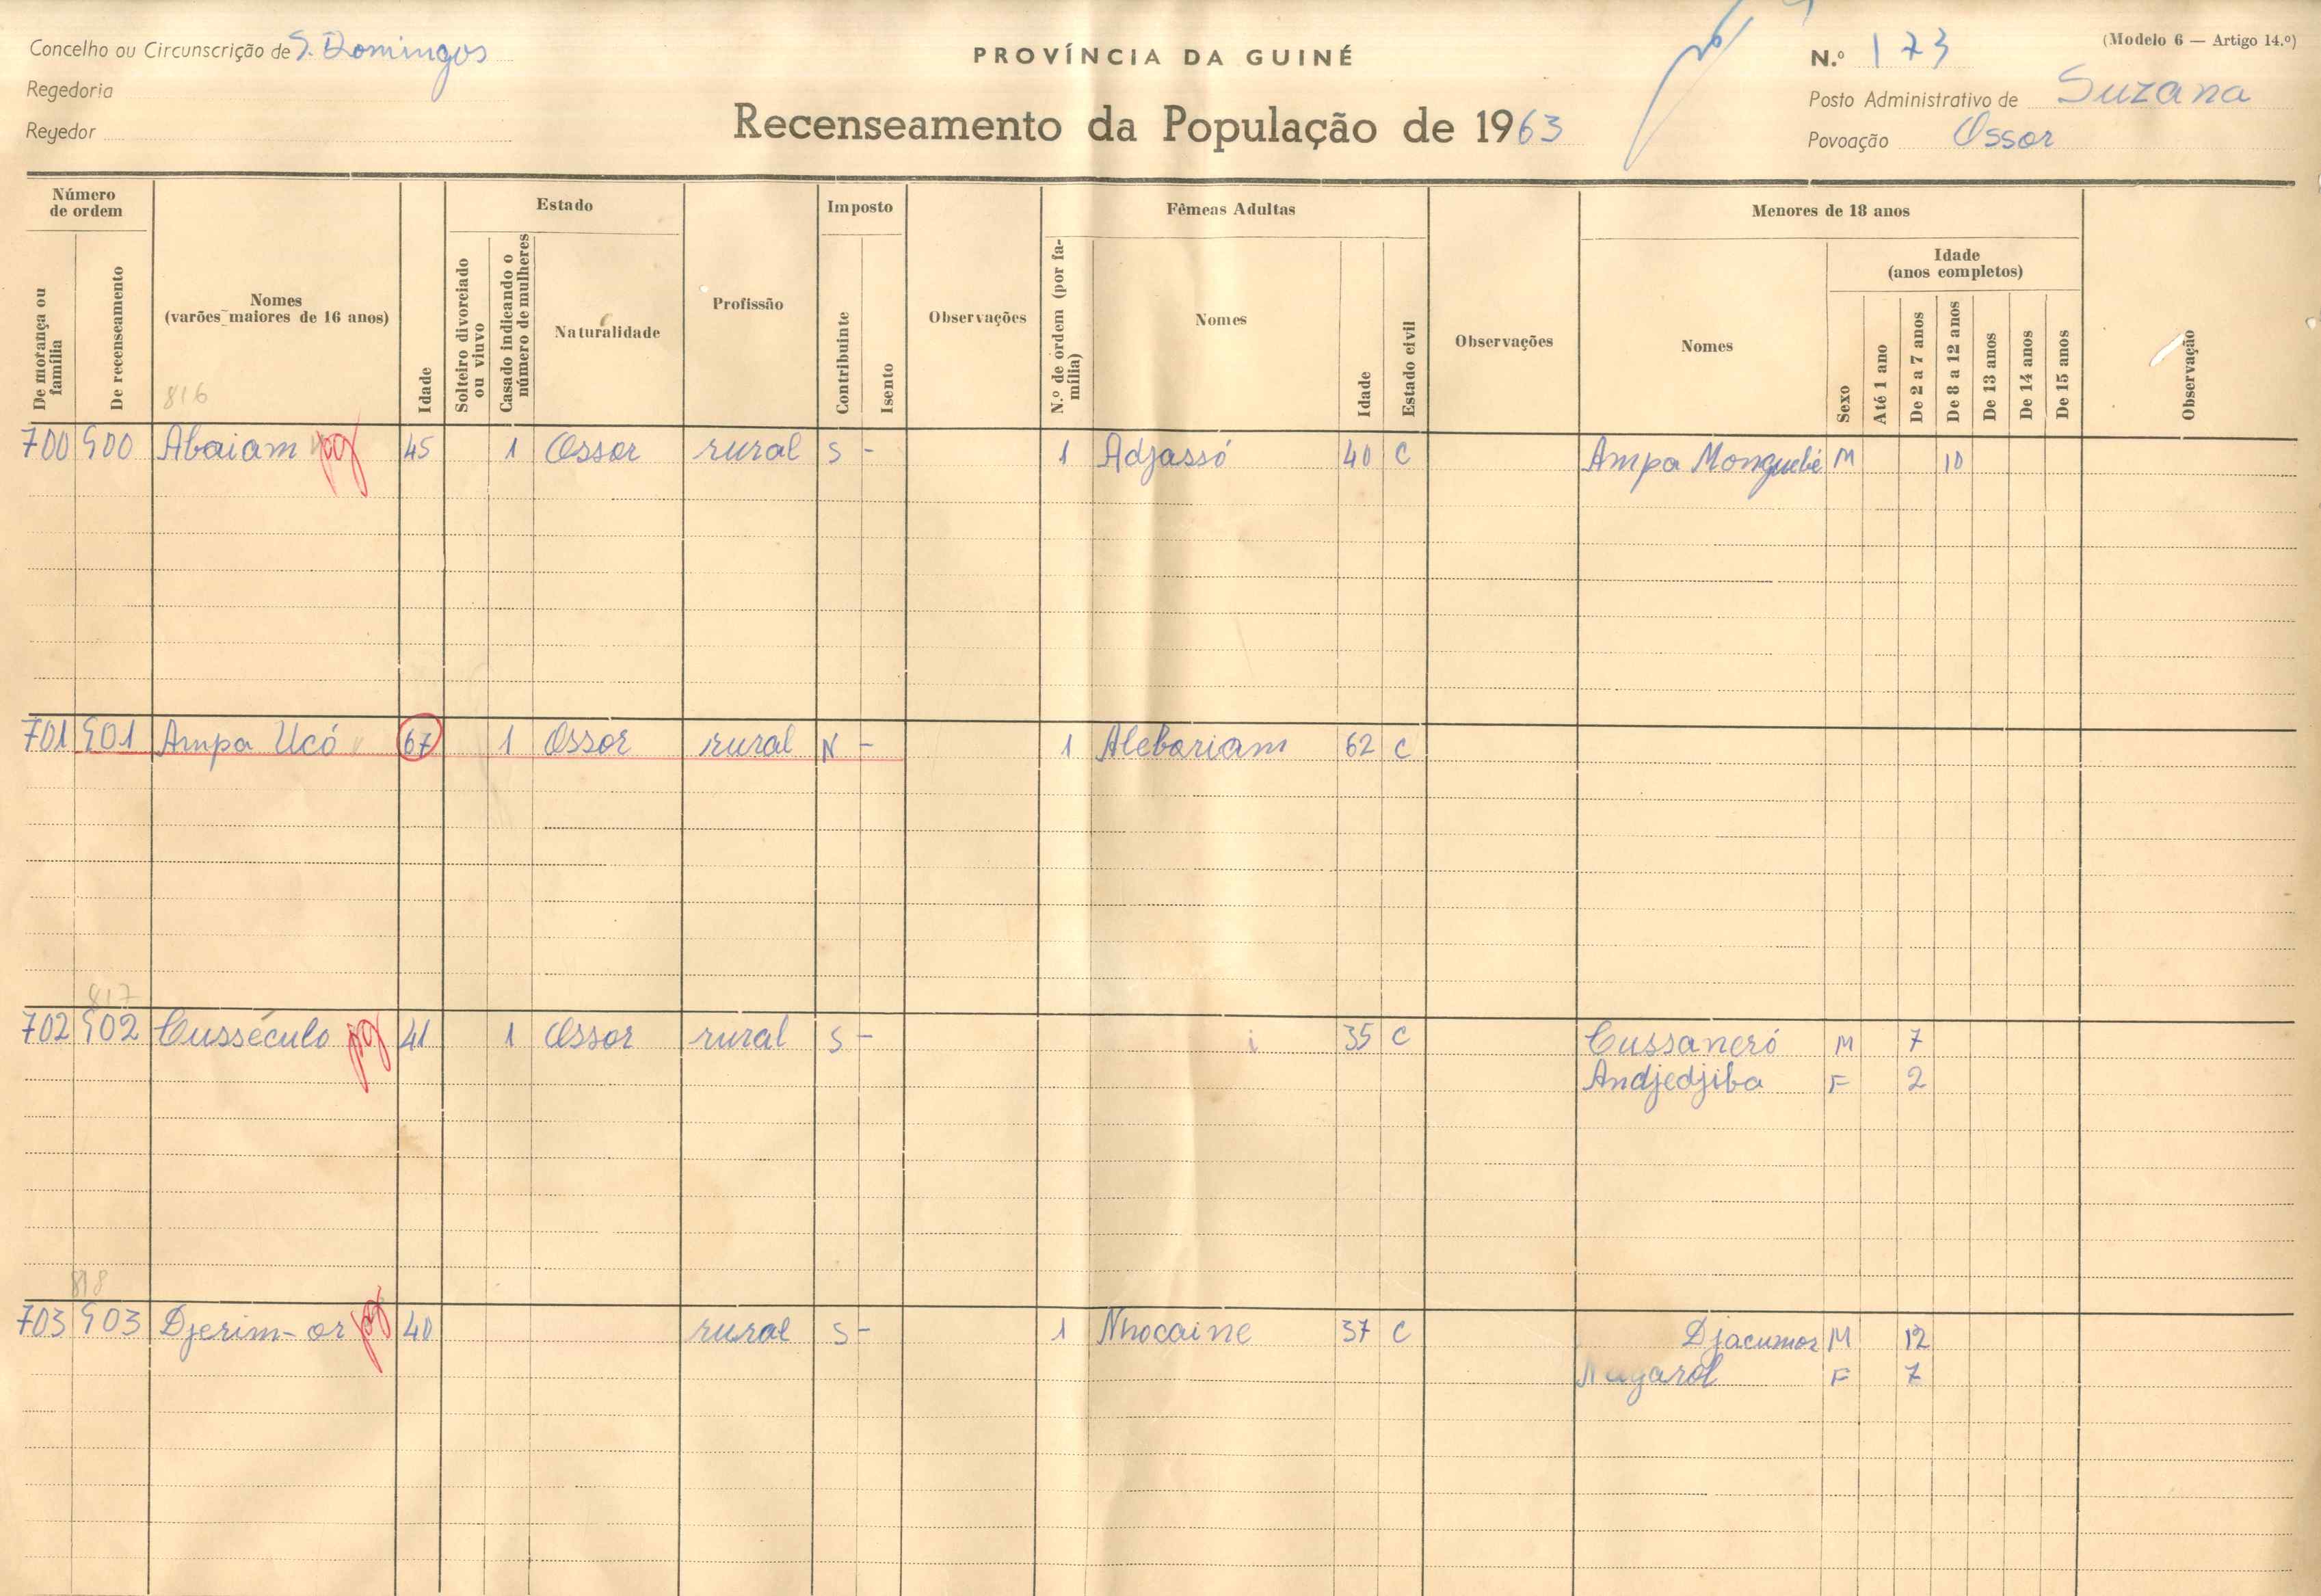 Concelho ou Circunscrição de S. Domingos
Regedoria
Regedor
PROVÍNCIA DA GUINÉ
Recenseamento da População de 1963
(Modelo 6 — Artigo 14.º)
N.º 173
Posto Administrativo de Suzana
Povoação Ossor
Número de ordem
De morança ou família
De recenseamento
Nomes
(varões maiores de 16 anos)
816
Idade
Estado
Solteiro divorciado ou viuvo
Casado indicando o número de mulheres
Naturalidade
Profissão
Imposto
Contribuinte
Isento
Observações
Fêmeas Adultas
N.º de ordem (por família)
Nomes
Idade
Estado civil
Observações
Menores de 18 anos
Nomes
Sexo
Idade
(anos completos)
Até 1 ano
De 2 a 7 anos
De 8 a 12 anos
De 13 anos
De 14 anos
De 15 anos
Observação
700 900 Abaiam pg 45 1 Ossor rural S - 1 Adjassó 40 C Ampa Monguebé M 10
701 901 Ampa Ucó 67 1 Ossor rural N - 1 Alebariam 62 C
817
702 902 Cusséculo pg 41 1 Ossor rural S - i 35 C Cussaneró M 7
Andjedjiba F 2
818
703 903 Djerim-or pg 40 rural S - 1 Nhocaine 37 C Djacumor M 12
F 7